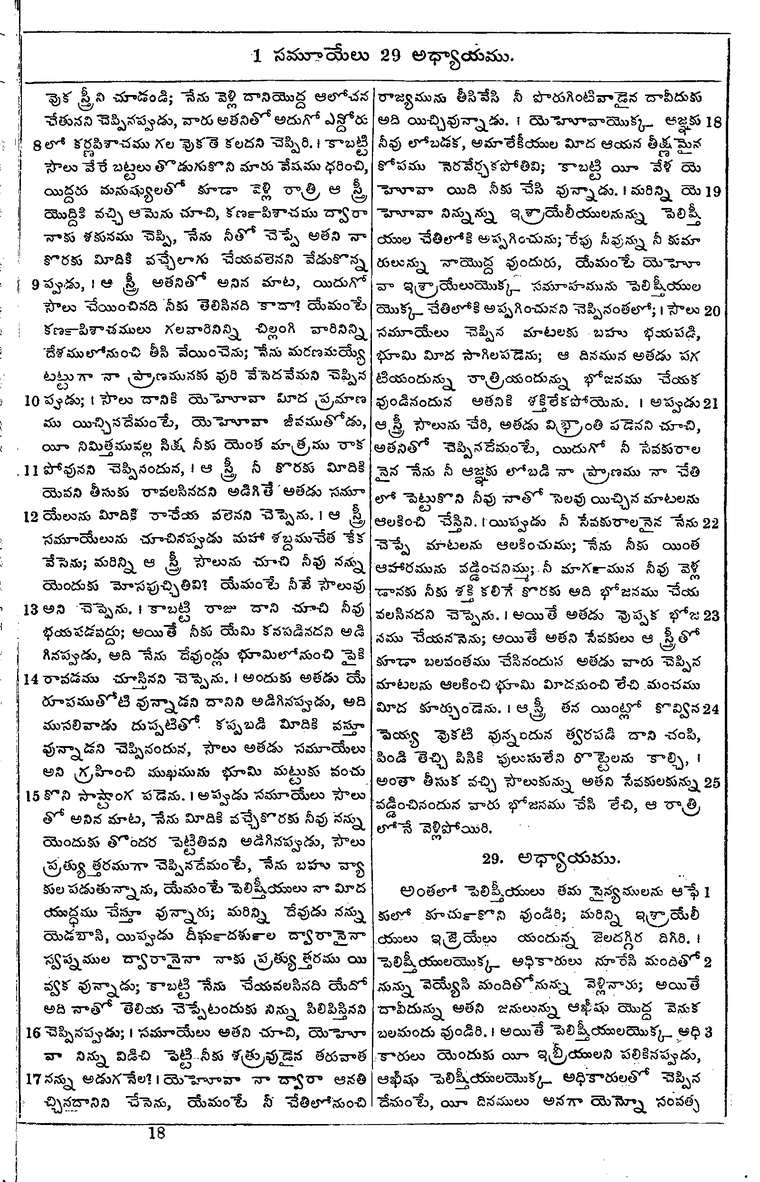 1 సమూయేలు 29 అధ్యాయము.
వుక స్త్రీని చూడండి; నేను వెళ్లి దానియొద్ద ఆలోచన
చేతునని చెప్పినప్పుడు, వారు అతనితో అదుగో ఎన్దోరు
8 లో కర్ణపిశాచము గల వుకతె కలదని చెప్పిరి. । కాబట్టి
సౌలు వేరే బట్టలు తొడుగుకొని మారు వేషము ధరించి,
యిద్దరు మనుష్యులతో కూడా వెళ్లి రాత్రి ఆ స్త్రీ
యొద్దికి వచ్చి ఆమెను చూచి, కర్ణపిశాచము ద్వారా
నాకు శకునము చెప్పి, నేను నీతో చెప్పే అతని నా
కొరకు మీదికి వచ్చేలాగు చేయవలెనని వేడుకొన్న
9 ప్పుడు, । ఆ స్త్రీ అతనితో అనిన మాట, యిదుగో
సౌలు చేయించినది నీకు తెలిసినది కాదా? యేమంటే
కర్ణపిశాచములు గలవారినిన్ని చిల్లంగి వారినిన్ని
దేశములోనుంచి తీసి వేయించెను; నేను మరణమయ్యే
టట్టుగా నా ప్రాణమునకు వురి వేసెదవేమని చెప్పిన
10 ప్పుడు; । సౌలు దానికి యెహోవా మీద ప్రమాణ
ము యిచ్చినదేమంటే, యెహోవా జీవముతోడు,
యీ నిమిత్తమువల్ల సిక్ష నీకు యెంత మాత్రము రాక
11 పోవునని చెప్పినందున, । ఆ స్త్రీ నీ కొరకు మీదికి
యెవని తీసుకు రావలసినదని అడిగితే అతడు సమూ
12 యేలును మీదికి రాచేయ వలెనని చెప్పెను. । ఆ స్త్రీ
సమూయేలును చూచినప్పుడు మహా శబ్దముచేత కేక
వేసెను; మరిన్ని ఆ స్త్రీ సౌలును చూచి నీవు నన్ను
యెందుకు మోసపుచ్చితివి? యేమంటే నీవే సౌలువు
13 అని చెప్పెను. । కాబట్టి రాజు దాని చూచి నీవు
భయపడవద్దు; అయితే నీకు యేమి కనపడినదని అడి
గినప్పుడు, అది నేను దేవుండ్లు భూమిలోనుంచి పైకి
14 రావడము చూస్తినని చెప్పెను. । అందుకు అతడు యే
రూపముతోటి వున్నాడని దానిని అడిగినప్పుడు, అది
ముసలివాడు దుప్పటితో కప్పబడి మీదికి వస్తూ
వున్నాడని చెప్పినందున, సౌలు అతడు సమూయేలు
అని గ్రహించి ముఖమును భూమి మట్టుకు వంచు
15 కొని సాష్టాంగ పడెను. । అప్పుడు సమూయేలు సౌలు
తో అనిన మాట, నేను మీదికి వచ్చేకొరకు నీవు నన్ను
యెందుకు తొందర పెట్టితివని అడిగినప్పుడు, సౌలు
ప్రత్యుత్తరముగా చెప్పినదేమంటే, నేను బహు వ్యా
కుల పడుతున్నాను, యేమంటే పెలిష్తీయులు నా మీద
యుద్ధము చేస్తూ వున్నారు; మరిన్ని దేవుడు నన్ను
యెడబాసి, యిప్పుడు దీర్ఘదర్శుల ద్వారానైనా
స్వప్నముల ద్వారానైనా నాకు ప్రత్యుత్తరము యి
వ్వక వున్నాడు; కాబట్టి నేను చేయవలసినది యేదో
అది నాతో తెలియ చెప్పేటందుకు నిన్ను పిలిపిస్తినని
16 చెప్పినప్పుడు; । సమూయేలు అతని చూచి, యెహో
వా నిన్ను విడిచి పెట్టి నీకు శత్రువుడైన తరువాత
17 నన్ను అడుగనేల? । యెహోవా నా ద్వారా ఆనతి
చ్చినదానిని చేసెను, యేమంటే నీ చేతిలోనుంచి
రాజ్యమును తీసివేసి నీ పొరుగింటివాడైన దావీదుకు
అది యిచ్చివున్నాడు. । యెహోవాయొక్క ఆజ్ఞకు 18
నీవు లోబడక, అమాలేకీయుల మీద ఆయన తీక్ష్ణమైన
కోపము నెరవేర్చకపోతివి; కాబట్టి యీ వేళ యె
హోవా యిది నీకు చేసి వున్నాడు. । మరిన్ని యె 19
హోవా నిన్నున్ను ఇశ్రాయేలీయులనున్ను పెలిష్తీ
యుల చేతిలోకి అప్పగించును; రేపు నీవున్ను నీ కుమా
రులున్ను నాయొద్ద వుందురు, యేమంటే యెహో
వా ఇశ్రాయేలుయొక్క సమూహమును పెలిష్తీయుల
యొక్క చేతిలోకి అప్పగించునని చెప్పినంతలో; । సౌలు 20
సమూయేలు చెప్పిన మాటలకు బహు భయపడి,
భూమి మీద సాగిలపడెను; ఆ దినమున అతడు పగ
టియందున్ను రాత్రియందున్ను భోజనము చేయక
వుండినందున అతనికి శక్తిలేకపోయెను. । అప్పుడు 21
ఆ స్త్రీ సౌలును చేరి, అతడు విభ్రాంతి పడెనని చూచి,
అతనితో చెప్పినదేమంటే, యిదుగో నీ సేవకురాల
నైన నేను నీ ఆజ్ఞకు లోబడి నా ప్రాణము నా చేతి
లో పెట్టుకొని నీవు నాతో సెలవు యిచ్చిన మాటలను
ఆలకించి చేస్తిని. । యిప్పుడు నీ సేవకురాలనైన నేను 22
చెప్పే మాటలను ఆలకించుము; నేను నీకు యింత
ఆహారమును వడ్డించనిమ్ము; నీ మార్గమున నీవు వెళ్ల
డానకు నీకు శక్తి కలిగే కొరకు అది భోజనము చేయ
వలసినదని చెప్పెను. । అయితే అతడు వుప్పక భోజ 23
నము చేయననెను; అయితే అతని సేవకులు ఆ స్త్రీతో
కూడా బలవంతము చేసినందున అతడు వారు చెప్పిన
మాటలను ఆలకించి భూమి మీదనుంచి లేచి మంచము
మీద కూర్చుండెను. । ఆ స్త్రీ తన యింట్లో కొవ్విన 24
పెయ్య వుకటి వున్నందున త్వరపడి దాని చంపి,
పిండి తెచ్చి పిసికి పులుసులేని రొట్టెలను కాల్చి, ।
అంతా తీసుక వచ్చి సౌలుకున్ను అతని సేవకులకున్ను 25
వడ్డించినందున వారు భోజనము చేసి లేచి, ఆ రాత్రి
లోనే వెళ్లిపోయిరి.
29. అధ్యాయము.
అంతలో పెలిష్తీయులు తమ సైన్యములను ఆఫే 1
కులో కూర్చుకొని వుండిరి; మరిన్ని ఇశ్రాయేలీ
యులు ఇజ్రెయేలు యందున్న జెలదగ్గిర దిగిరి. ।
పెలిష్తీయులయొక్క అధికారులు నూరేసి మందితో 2
నున్ను వెయ్యేసి మందితోనున్ను వెళ్లినారు; అయితే
దావీదున్ను అతని జనులున్ను ఆఖీషు యొద్ద వెనుక
బలమందు వుండిరి. । అయితే పెలిష్తీయులయొక్క అధి 3
కారులు యెందుకు యీ ఇబ్రీయులని పలికినప్పుడు,
ఆఖీషు పెలిష్తీయులయొక్క అధికారులతో చెప్పిన
దేమంటే, యీ దినములు అనగా యెన్నో సంవత్స
18